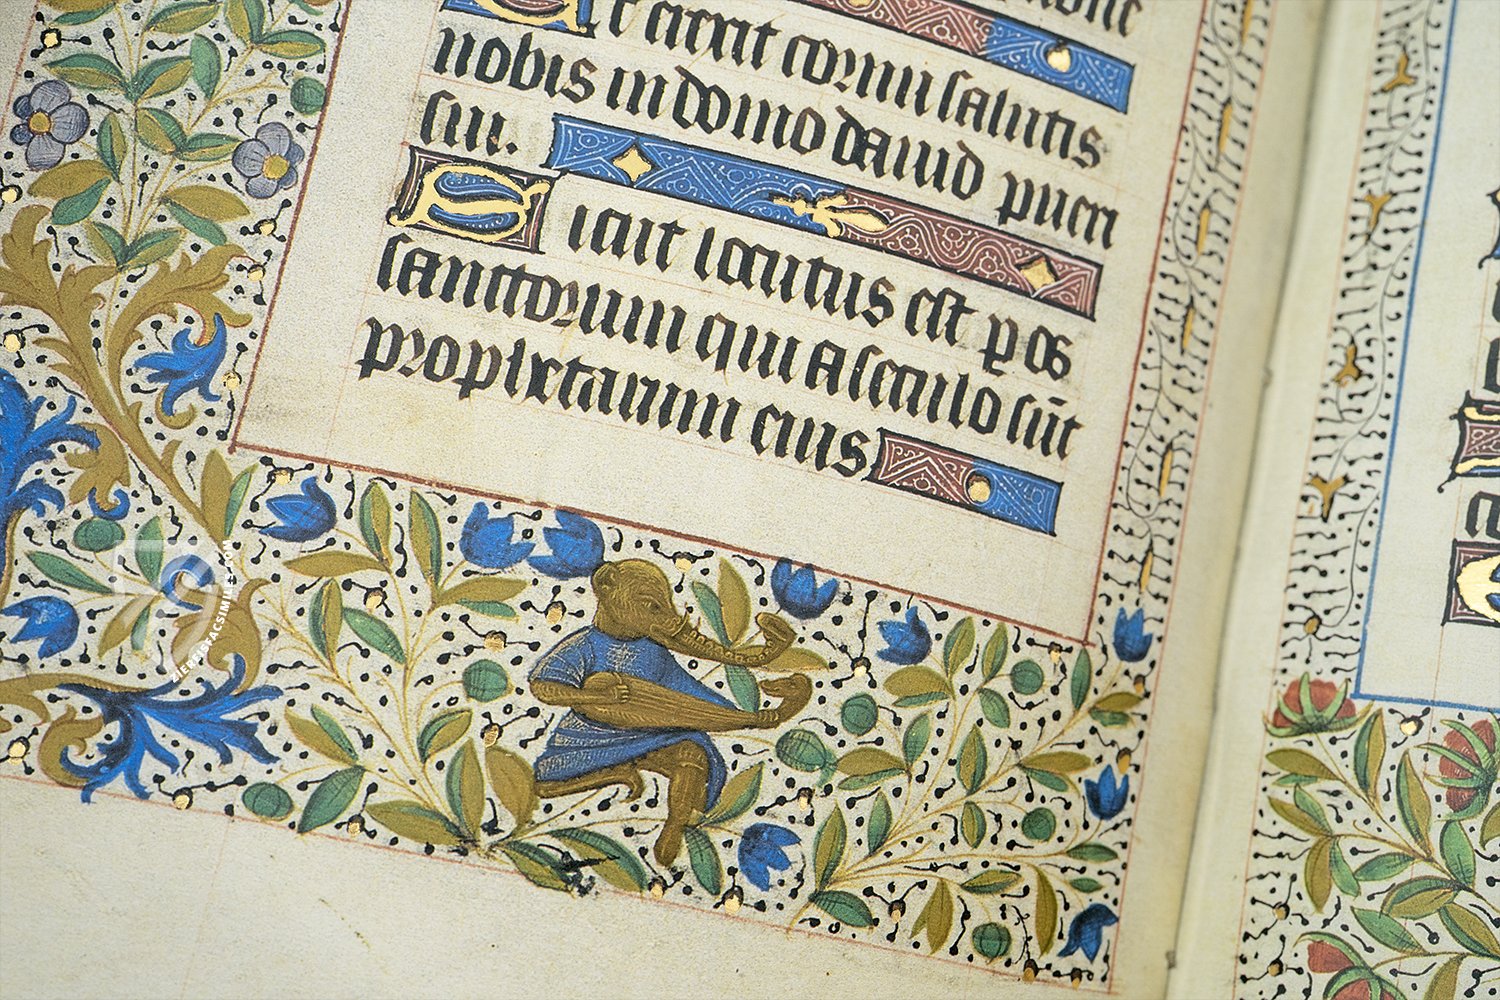 Et erexit cornu salutis
nobis in domo dauid pueri
sui.
Sicut locutus est p os
sanctorum qui a seculo sūt
prophetarum eius
ZIEREISFACSIMILES.COM